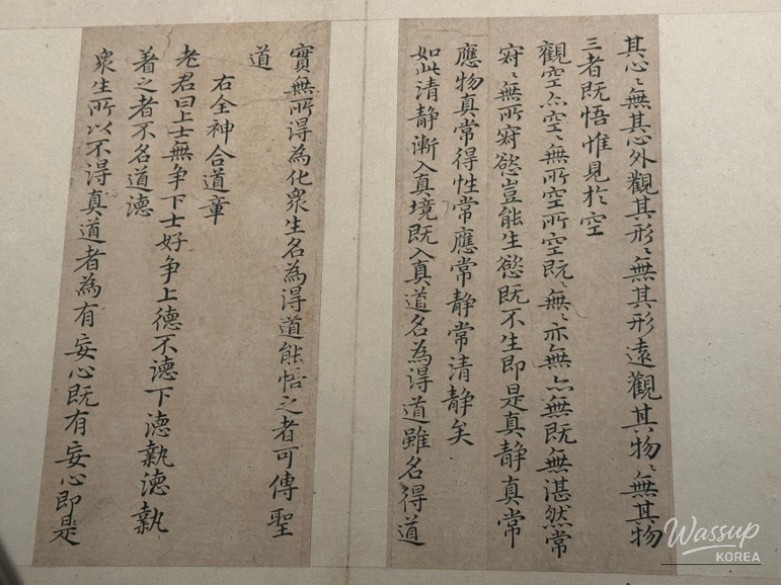 其心〻無其心外觀其形〻無其形遠觀其物〻無其物
三者既悟惟見於空
觀空亦空〻無所空所空既〻無〻亦無亦無既無湛然常
寂〻無所寂慾豈能生慾既不生即是真静真常
應物真常得性常應常静常清静矣
如此清静漸入真境既入真道名為得道雖名得道
實無所得為化衆生名為得道能悟之者可傳聖
道
右全神合道章
老君曰上士無争下士好争上德不德下德執德執
着之者不名道德
衆生所以不得真道者為有妄心既有妄心即是
Wassup
KOREA